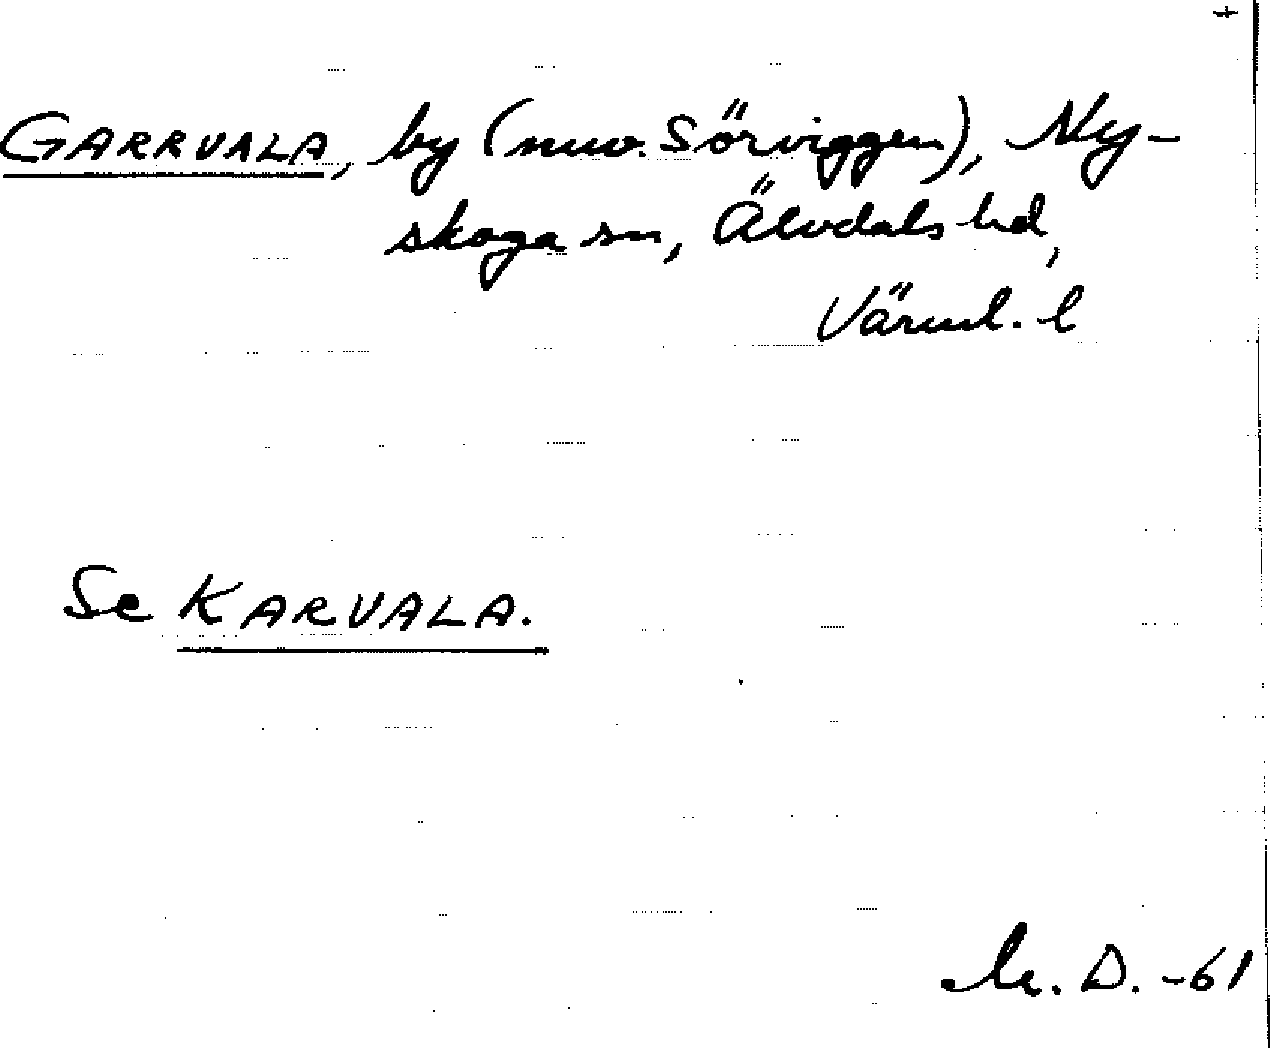 +
GARRVALA, by (nuv. Sörviggen), Ny-
skoga sn, Älvdals hd,
Värml. l
Se KARVALA.
M. D. -61